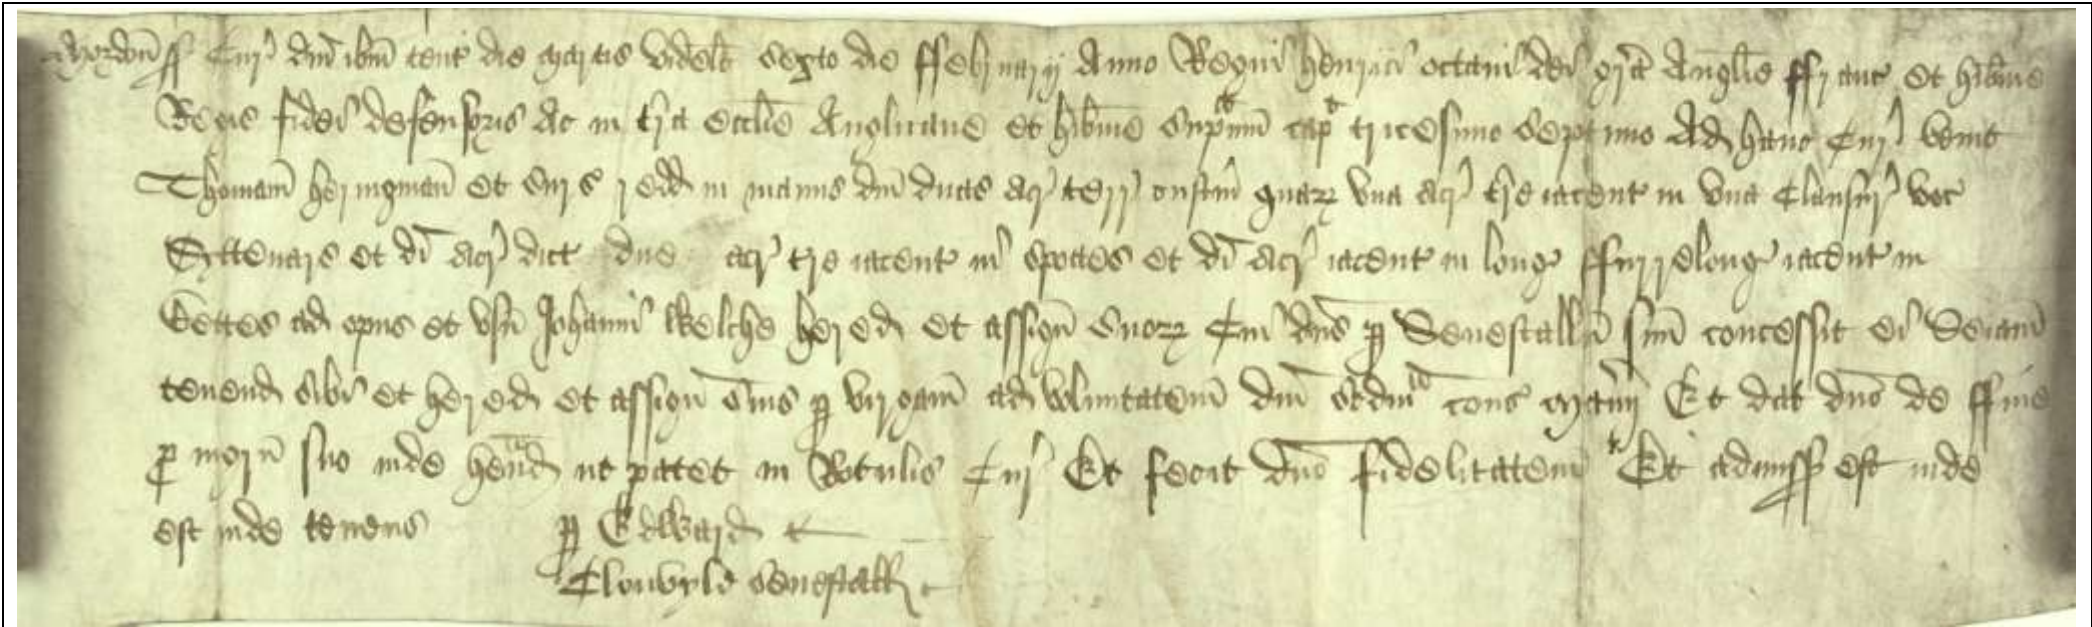 Mordon ss Cur dni ibm tent die martis videlt sexto die ffebruarij Anno Regni henrici octavi dei gra Anglie ffranc et hibnie
Regis fidei defensoris ac in terra ecclie Anglicane et hibnie supmi capt tricesimo septimo Ad hanc Cur venit
Thomam heringman et surs redd in manus dni duas acr terr custum quarz una acr tre iacent in una Clausur voc
et di acr dict due acr tre iacent in spottes et di acr iacent in long ffurrelong iacent in
Bettes ad opus et usu Johannis Welche hered et assign suorz Cui dns p Senescallu suu concessit ei Seiam
tenend sibi et hered et assign suis p virgam ad voluntatem dni scdm cons manij Et dat dno de ffine
p mor suo inde hend ut patet in Rotulis Cur Et fecit dno fidelitatem Et admiss est inde
est inde tenens p Edward
Clouvyle senescall